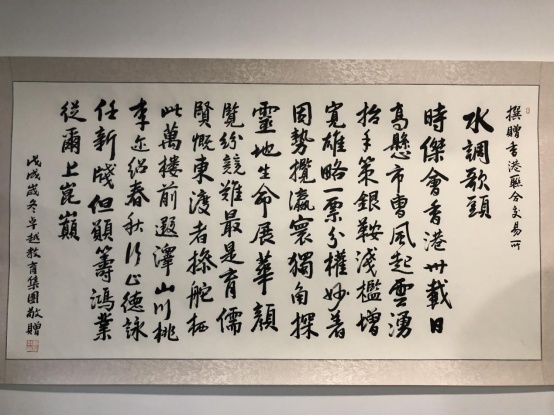 撰贈香港聯合交易所
水調歌頭
時傑會香港卅載日
高懸市曹風起雲湧
抬手策銀鞍淺檻增
寬雄略一票分權妙著
固勢攬瀛寰獨角探
靈地生命展華顏
覽紛競難最是育儒
賢慨東渡者操舵栖
此萬樓前遐澤山川桃
李近紹春秋行止德詠
任新牋但願籌鴻業
從爾上崑巔
戊戌歲冬卓越教育集團敬贈